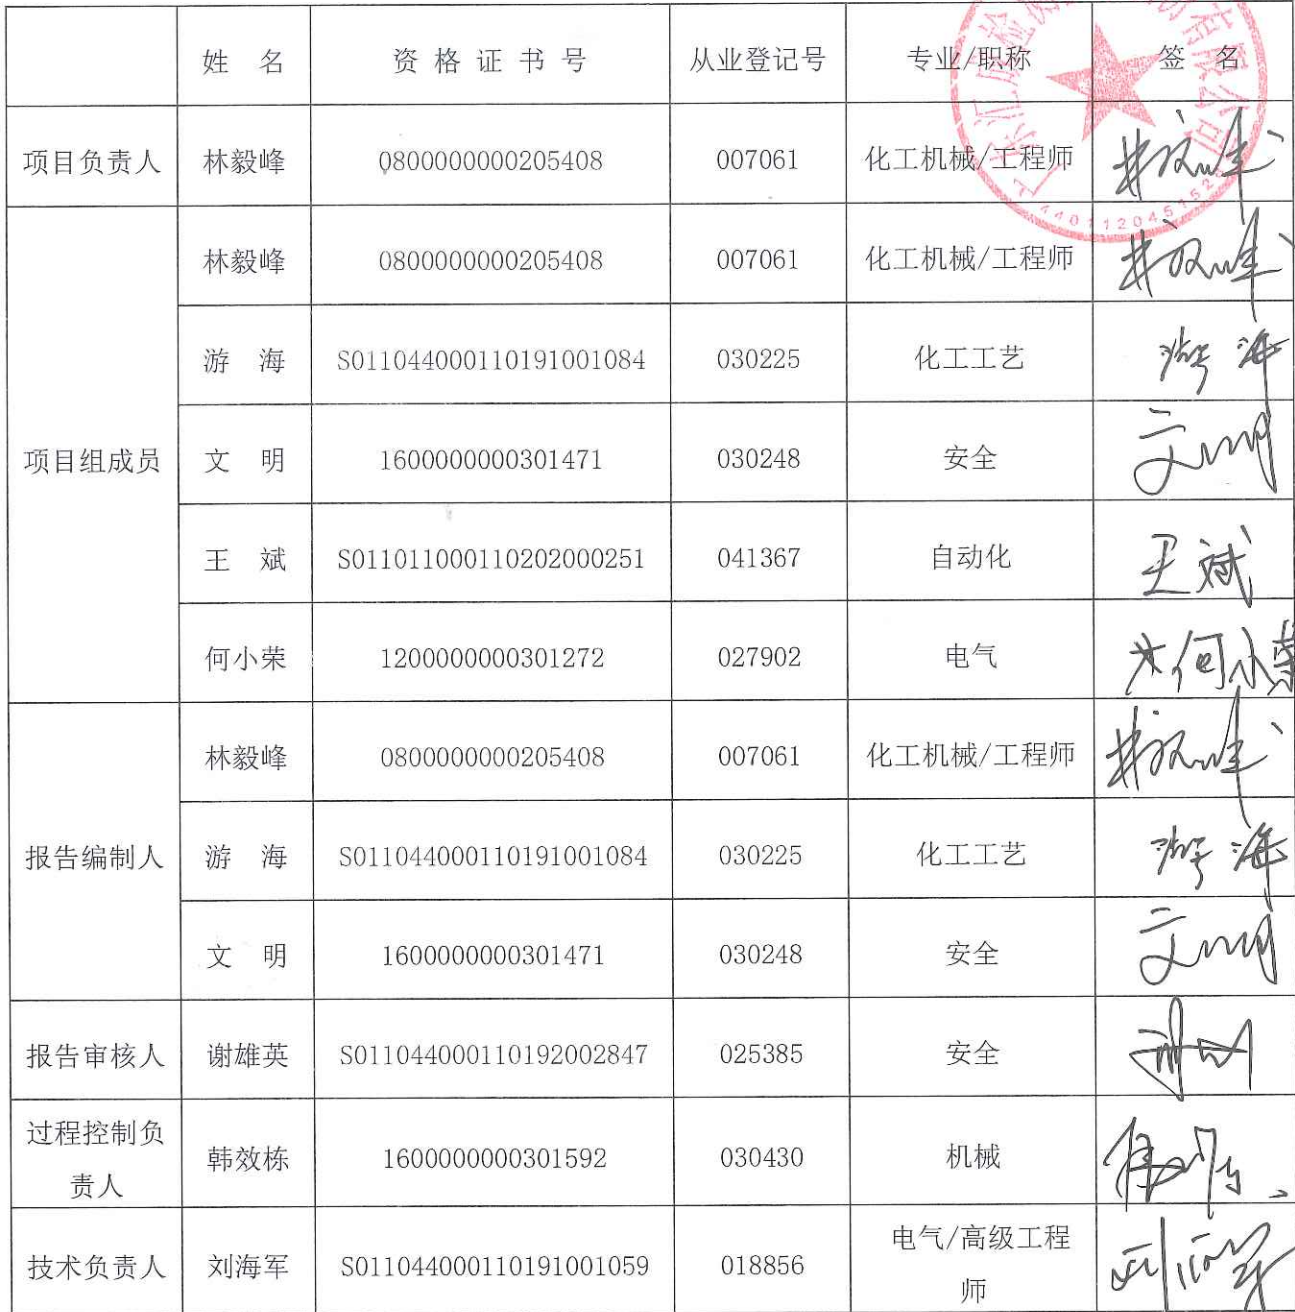 姓 名 资格证书号 从业登记号 专业/职称 签 名
项目负责人 林毅峰 0800000000205408 007061 化工机械/工程师
林毅峰 0800000000205408 007061 化工机械/工程师
游 海 S011044000110191001084 030225 化工工艺 游海
项目组成员 文 明 1600000000301471 030248 安全 文明
王 斌 S011011000110202000251 041367 自动化 王斌
何小荣 1200000000301272 027902 电气 何小荣
林毅峰 0800000000205408 007061 化工机械/工程师
报告编制人 游 海 S011044000110191001084 030225 化工工艺 游海
文 明 1600000000301471 030248 安全 文明
报告审核人 谢雄英 S011044000110192002847 025385 安全
过程控制负
责人 韩效栋 1600000000301592 030430 机械
技术负责人 刘海军 S011044000110191001059 018856 电气/高级工程
师